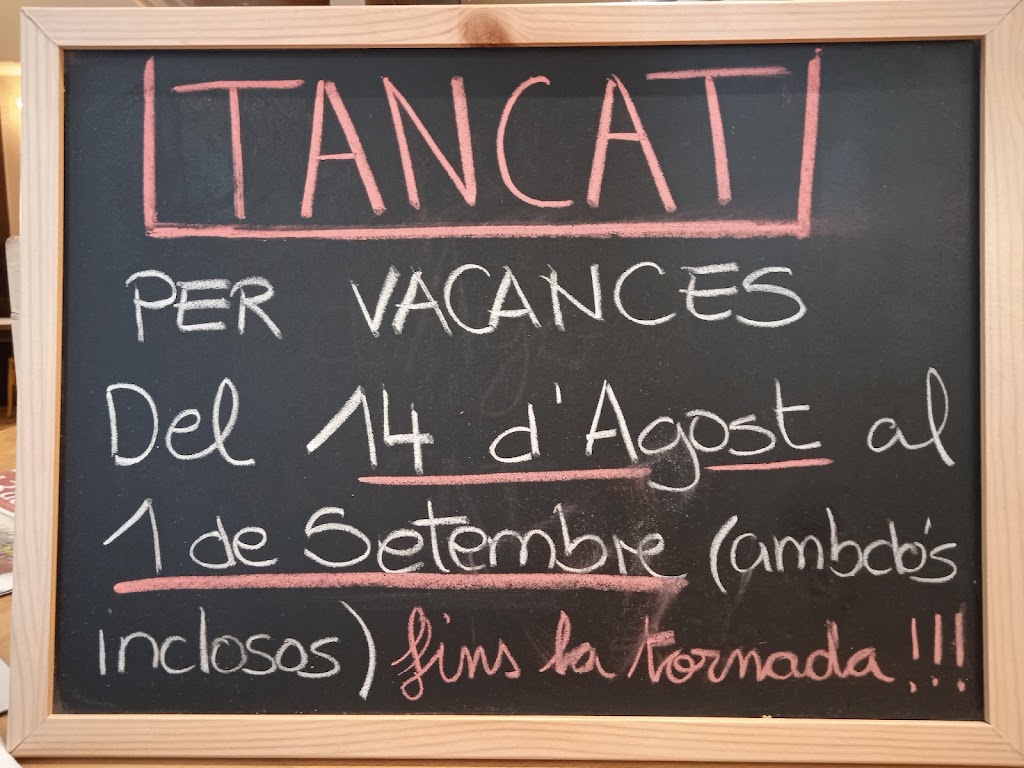 TANCAT
PER VACANCES
Del 14 d'Agost al
1 de Setembre (ambdós
inclosos) fins la tornada!!!